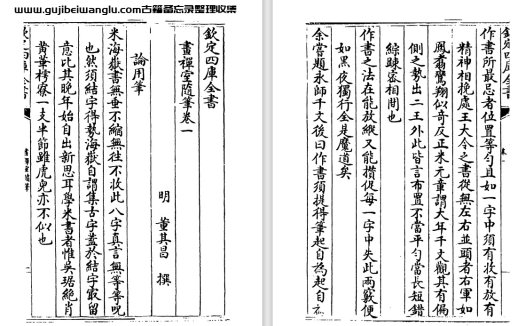 www.gujibeiwanglu.com古籍备忘录整理收集
欽定四庫全書
畫禪室隨筆卷一
明 董其昌 撰
論用筆
米海嶽書無垂不縮無往不收此八字真言無等等呪
也然須結字得勢海嶽自謂集古字蓋於結字最留
意比其晚年始自出新思耳學米書者惟吳琚絶肖
黄華樗寮一支半節雖虎兒亦不似也
作書所最忌者位置等勻且如一字中須有收有放有
精神相挽處王大令之書從無左右並頭者右軍如
鳳翥鸞翔似奇反正米元章謂大年千文觀其有偏
側之勢出二王外此皆言布置不當平勻當長短錯
綜疎密相間也
作書之法在能放縱又能攢促每一字中失此兩竅便
如黒夜獨行全是魔道矣
余嘗題永師千文後曰作書須提得筆起自為起自
欽定四庫全書